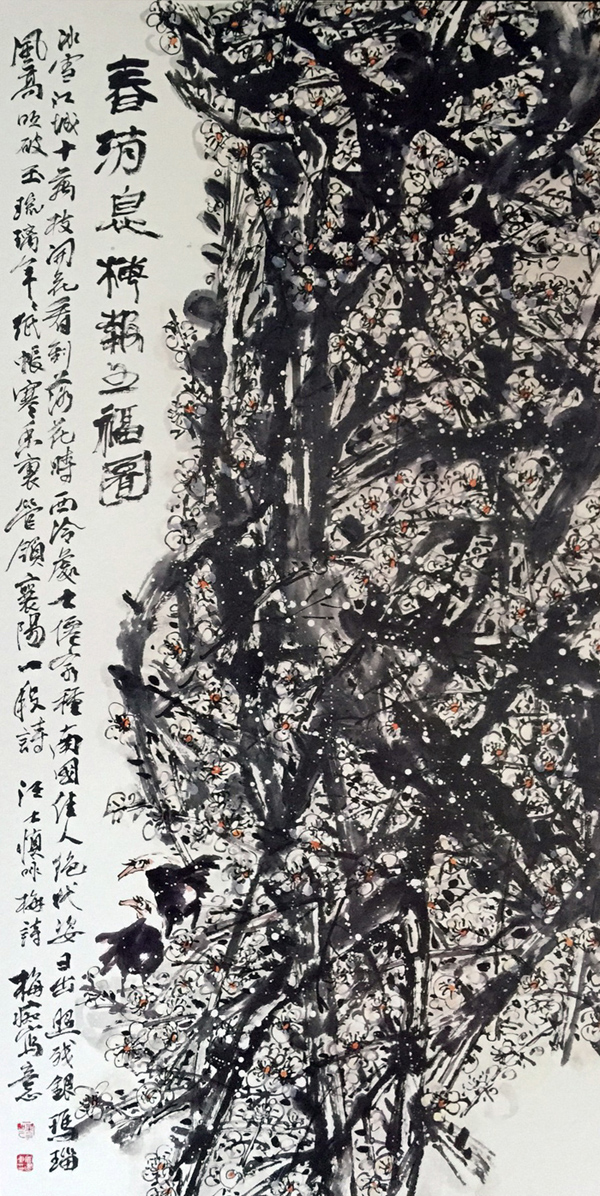 春消息梅報五福圖
冰雪江城十萬枝開花看到落花時西泠處士僊家種南國佳人絶代姿日出照成銀瑪瑙
風高吹破玉琉璃年〻紙帳寒香裏管領襄陽一段詩 汪士慎咏梅詩 梅痴寫意